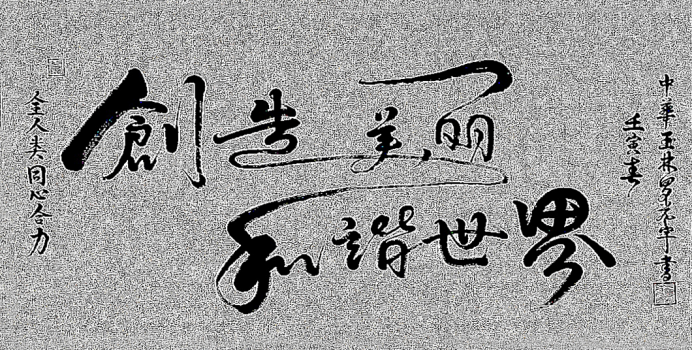 全人类同心合力
創造美丽
和諧世界
中华玉林罗元中書
壬寅春